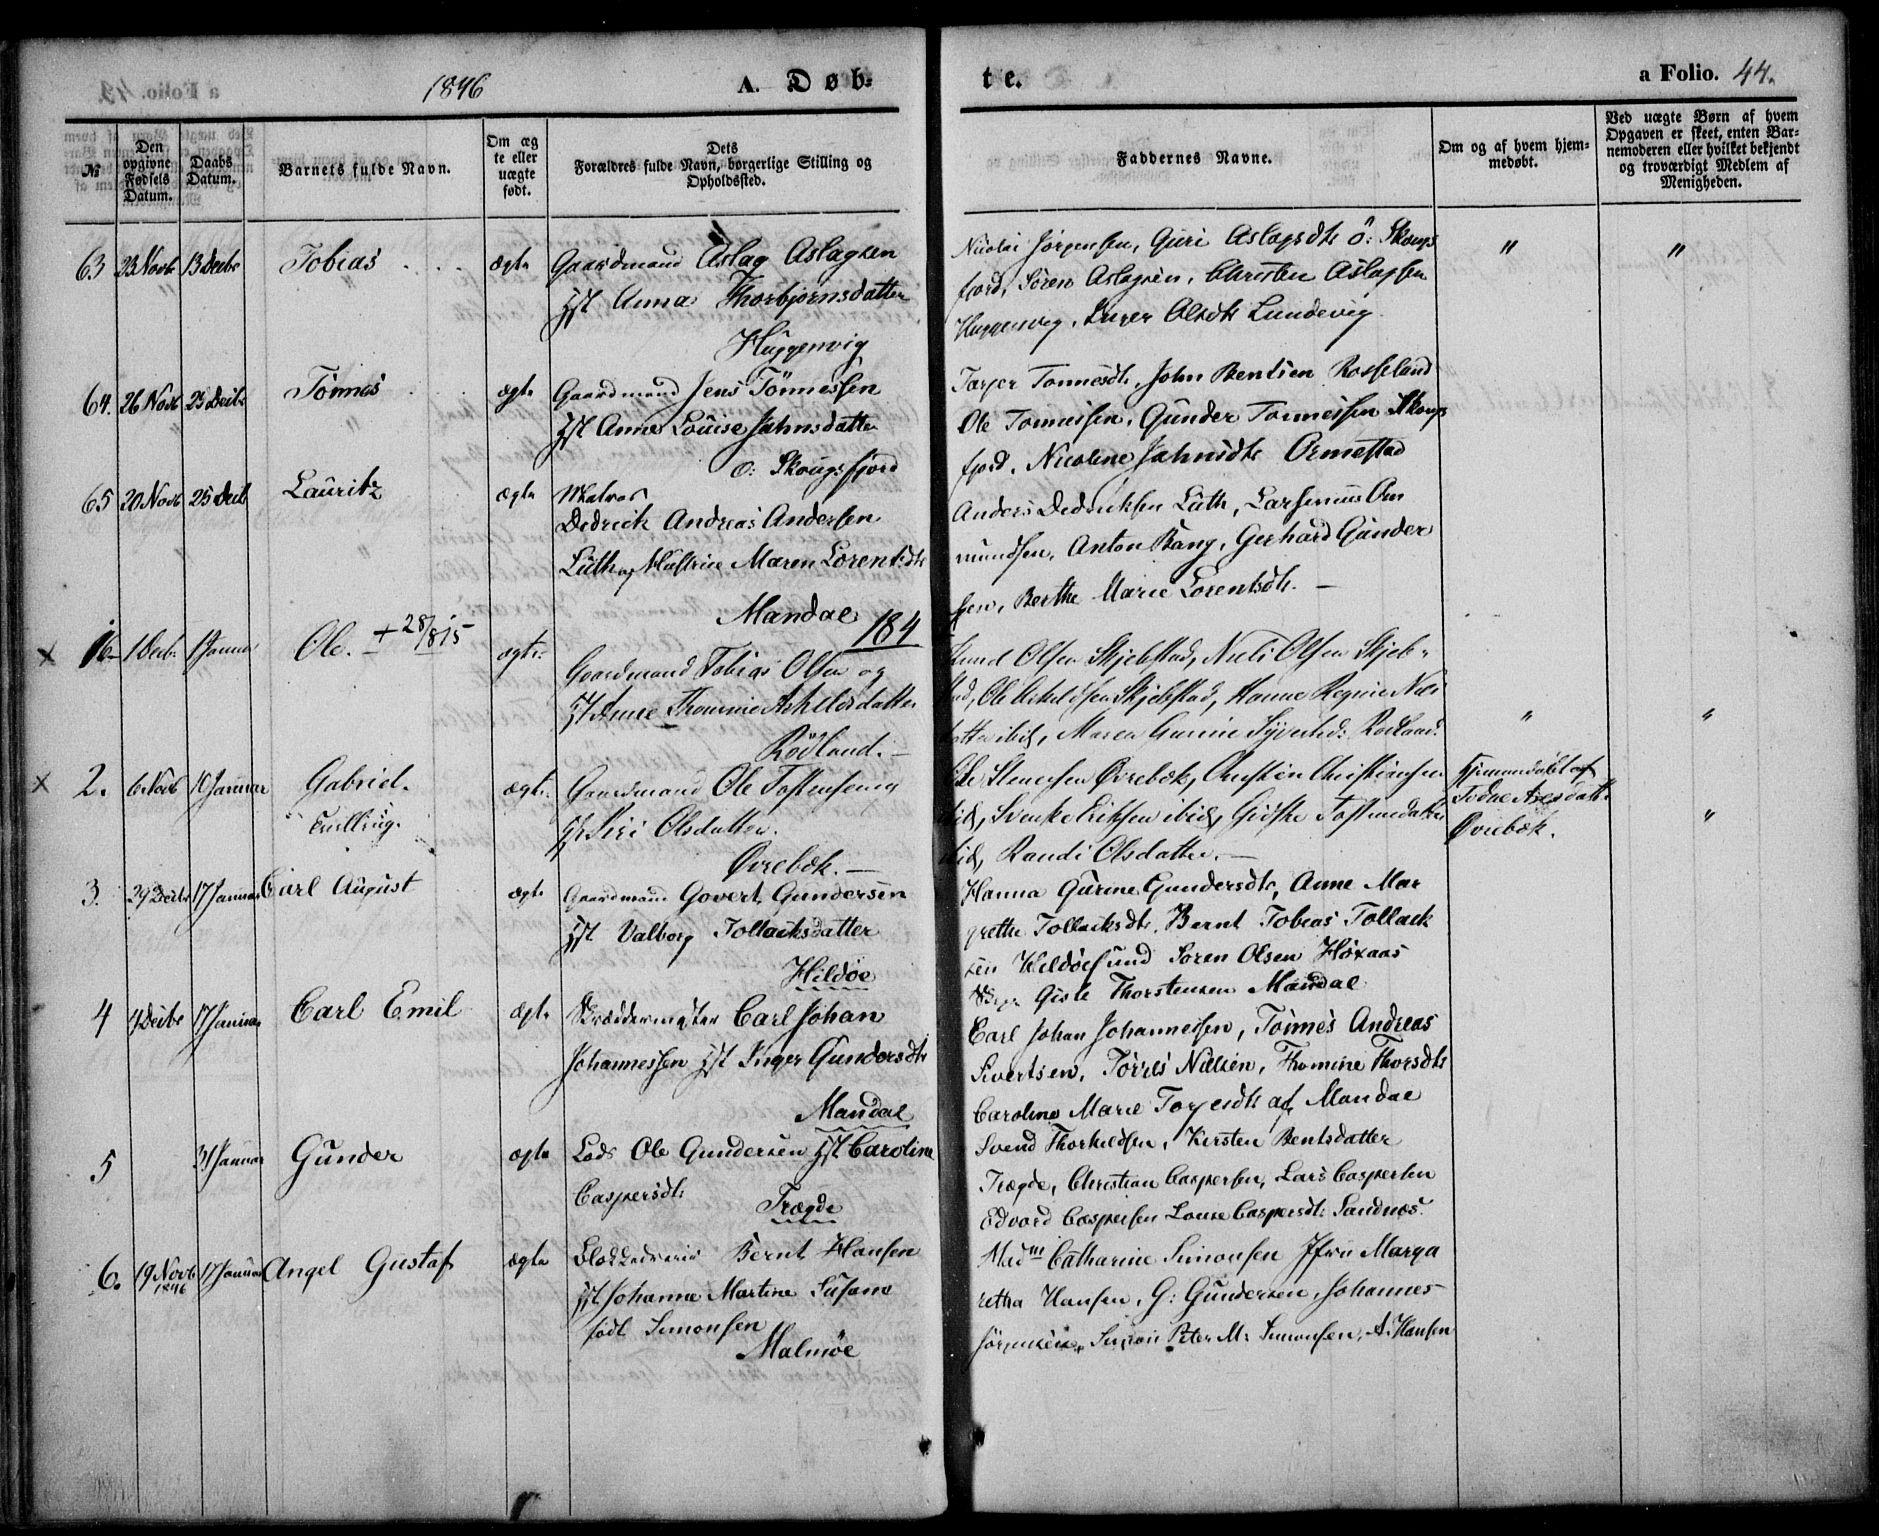 1846 A. Døb- te. a Folio. 44.
№
Den opgivne Fødsels Datum.
Daabs Datum.
Barnets fulde Navn.
Om æg te eller uægte født.
Dets Forældres fulde Navn, borgerlige Stilling og Opholdssted.
Faddernes Navne.
Om og af hvem hjem- medøbt.
Ved uægte Børn af hvem Opgaven er skeet, enten Bar- nemoderen eller hvilket bekjendt og troværdigt Medlem af Menigheden.
63 23 Novb 13 Decbr Tobias ægte Gaardmand Aslag Aslagsen
Hst Anna Thorbjørnsdatter
Huggenvig
Nicolai Jørgensen, Guri Aslagsdtr ö: Skougs
fjord, Søren Aslagsen, Christen Aslagsen
Huggenvig, Inger Olsdtr Lundevig
" "
64. 26 Novb 25 Decbr Tönnes ægte Gaardmand Jens Tönnessen
Hst Anne Louise Jahnsdatter
ö: Skougsfjord
Tönnesdtr, John Bentsen Rosseland
Ole Tönnessen, Gunder Tonnessen Skougs
fjord, Nicoline Jahnsdtr Ormestad
65 20 Novb 25 Decb Lauritz ægte
Dedrick Andreas Andersen
Lüth og Hustrue Maren Lorentsdtr
Mandal
Anders Dedricksen Lüth, Larsenius Om
mundsen, Anton Bang, Gerhard Gunder
sen, Berthe Marie Lorentsdtr. —
184
x 1 Decb. 1 Januar Ole. + 28/8 15 ægte. Gaardmand Tobias Olsen og
Hst Anne Thomine Askildsdatter
Rödland. —
Olsen Skjebstad, Niels Olsen Skjeb-
stad, Ole Askildsen Skjebstad, Hanne Regine Niels
datter ibid, Maren Gurine Syvertsd: Rödland.
" "
x 2. 6 Novb 10 Januar Gabriel.
Tvilling.
ægte. Gaardmand Ole Tostensen og
Hst Siri Olsdatter.
Øvrebæk. —
Ole Stensen Øvrebæk, Christen Christiansen
ibid, Svenke Eriksen ibid, Giöske Tostensdatter
ibid, Randi Olsdatter. —
Hjemmedöbt af
Todne Aasdatt.
Øvrebæk.
"
3. 29 Decbr 17 Januar Carl August ægte Gaardmand Govert Gundersen
Hst Valborg Tollacksdatter
Hildøe
Hanna Gurine Gundersdtr, Anne Mar
grethe Tollacksdtr, Bernt Tobias Tollack
sen Hildöesund Soren Olsen Höxaas
Gisle Thorstensen Mandal
4 4 Decbr 17 Januar Carl Emil ægte Skræddermester Carl Johan
Johannessen Hst Inger Gundersdtr
Mandal
Carl Johan Johannessen, Tönnes Andreas
Sivertsen, Törres Nielsen, Thomine Thorsdtr
Caroline Marie Torjesdtr af Mandal
5 31 Januar Gunder ægte Lods Ole Gundersen Hst Caroline
Caspersdtr
Trægde
Svend Thorkildsen, Kirsten Bentsdatter
Trægde, Christian Caspersen, Lars Caspersen
Edvard Caspersen Louise Caspersdtr Sandnes.
6. 19 Novb 1846 17 Januar Angel Gustaf ægte Bernt Hansen
Hst Johanne Martine Susane
født Simonsen
Malmöe
Madm Catharine Simonsen Jfru Marga
retha Hansen, G: Gundersen, Johannes
Jörgensen, Simon Peter M: Simonsen, A: Hansen